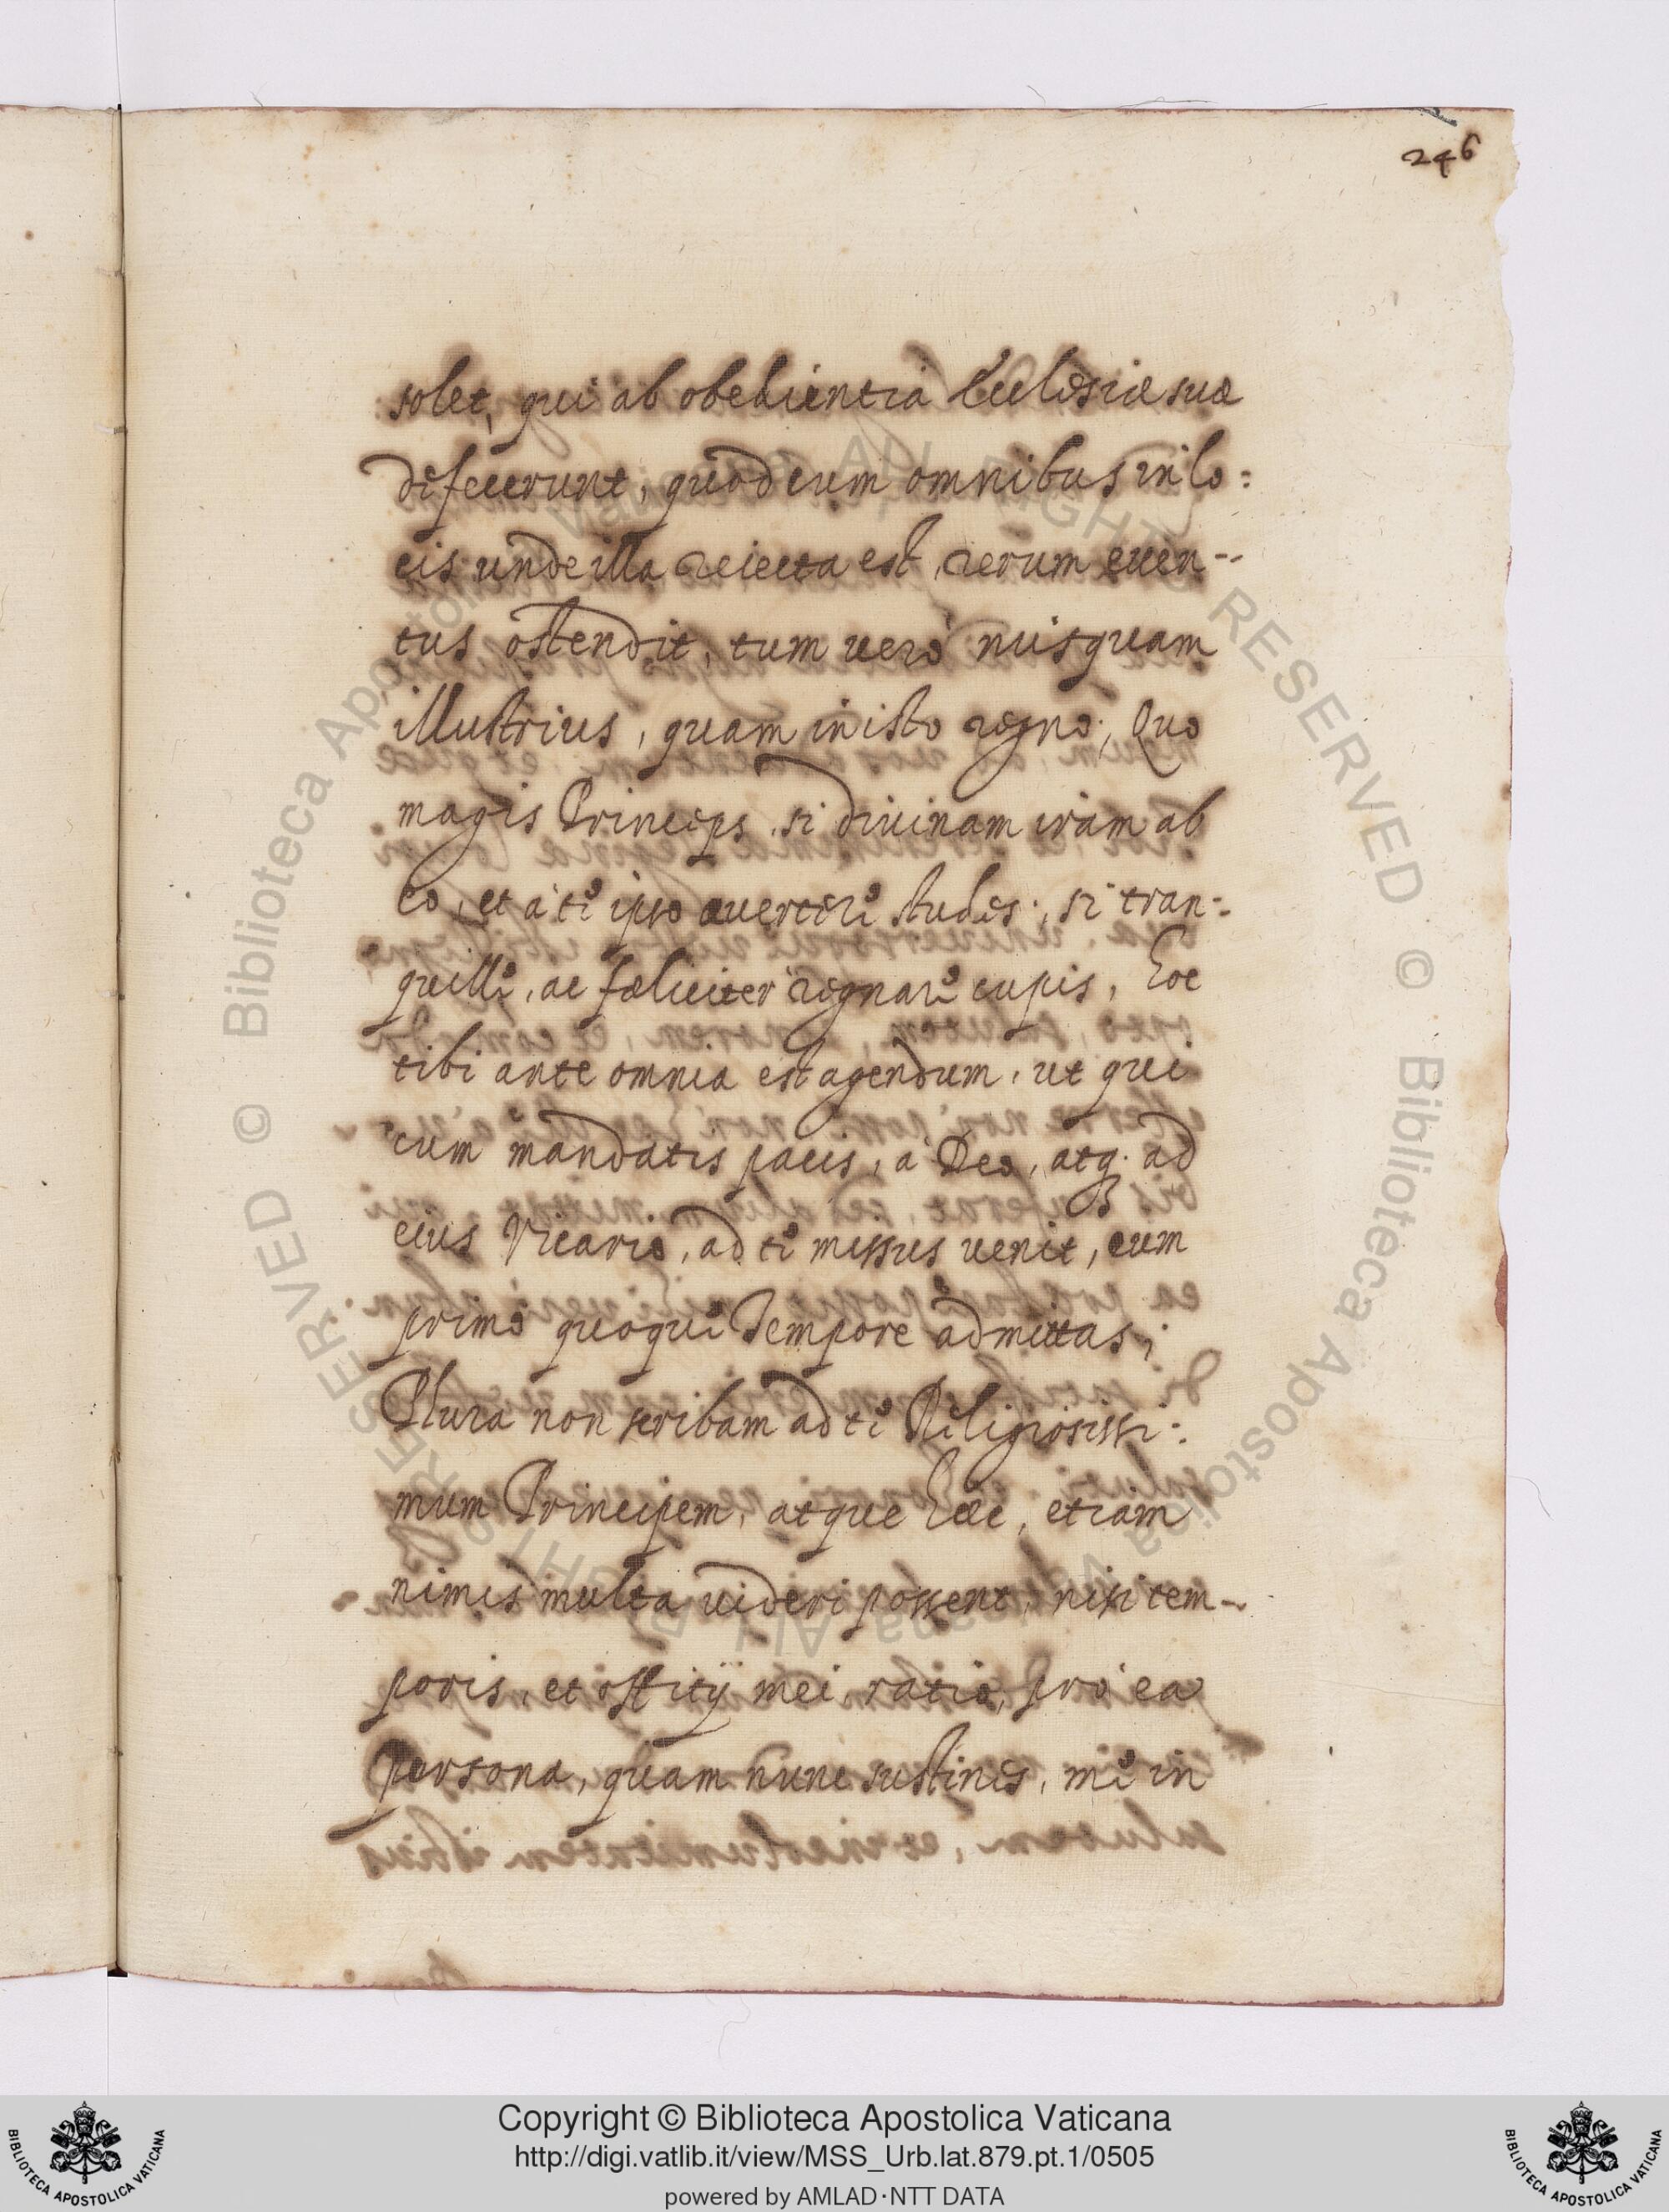 246
solet, qui ab obedientia Ecclesiæ suæ
defecerunt, quod cum omnibus in lo:
cis unde illa reiecta est, rerum euen--
tus ostendit, tum uerò nusquam
illustrius, quam in isto regno; Quo
magis Princeps, si diuinam iram ab
eo, et à te ipso auertere studes, si tran:
quille, ac fæliciter regnare cupis, hoc
tibi ante omnia est agendum, ut qui
cum mandatis pacis, à Deo, atq. ad
eius Vicario, ad te missus uenit, eum
primo quoque Tempore admittas;
Plura non scribam ad te Religiosissi:
mum Principem, atque hæc, etiam
nimis multa uideri possent, nisi tem--
poris, et offitij mei, ratio, pro ea
Persona, quam nunc sustines, me in
© Biblioteca Apostolica Vaticana ALL RIGHTS RESERVED
© Biblioteca Apostolica Vaticana ALL RIGHTS RESERVED
Copyright © Biblioteca Apostolica Vaticana
http://digi.vatlib.it/view/MSS_Urb.lat.879.pt.1/0505
powered by AMLAD·NTT DATA
BIBLIOTECA APOSTOLICA VATICANA
BIBLIOTECA APOSTOLICA VATICANA